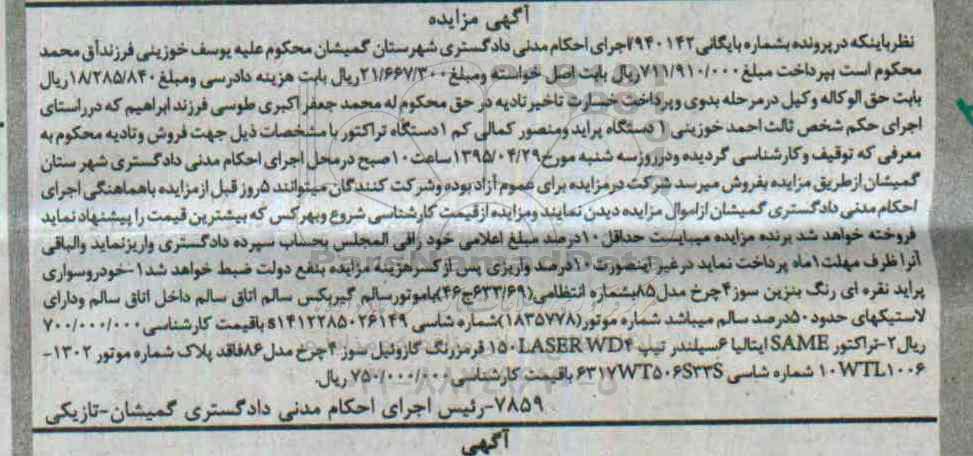 آگهی مزایده
نظرباینکه درپرونده بشماره بایگانی۹۴۰۱۴۲/اجرای احکام مدنی دادگستری شهرستان گمیشان محکوم علیه یوسف خوزینی فرزندآق محمد
محکوم است بپرداخت مبلغ۷۱۱/۹۱۰/۰۰۰ریال بابت اصل خواسته ومبلغ۲۱/۶۶۷/۳۰۰ریال بابت هزینه دادرسی ومبلغ۱۸/۲۸۵/۸۴۰ریال
بابت حق الوکاله وکیل درمرحله بدوی وپرداخت خسارت تاخیرتادیه در حق محکوم له محمد جعفر اکبری طوسی فرزند ابراهیم که درراستای
اجرای حکم شخص ثالث احمد خوزینی ۱ دستگاه پراید ومنصور کمالی کم ۱دستگاه تراکتور با مشخصات ذیل جهت فروش وتادیه محکوم به
معرفی که توقیف وکارشناسی گردیده ودرروزسه شنبه مورخ۱۳۹۵/۰۴/۲۹ساعت۱۰صبح درمحل اجرای احکام مدنی دادگستری شهر ستان
گمیشان ازطریق مزایده بفروش میرسد شرکت درمزایده برای عموم آزاد بوده وشرکت کنندگان میتوانند ۵روز قبل ازمزایده باهماهنگی اجرای
احکام مدنی دادگستری گمیشان ازاموال مزایده دیدن نمایند ومزایده ازقیمت کارشناسی شروع وبهرکس که بیشترین قیمت را پیشنهاد نماید
فروخته خواهد شد برنده مزایده میبایست حداقل ۱۰درصد مبلغ اعلامی خود رافی المجلس بحساب سپرده دادگستری واریزنماید والباقی
آنرا ظرف مهلت۱ماه پرداخت نماید درغیر اینصورت ۱۰درصد واریزی پس از کسرهزینه مزایده بنفع دولت ضبط خواهد شد۱-خودروسواری
پراید نقره ای رنگ بنزین سوز۴چرخ مدل۸۵بشماره انتظامی(۶۲۳/۶۹ج۴۶)باموتورسالم گیربکس سالم اتاق سالم داخل اتاق سالم ودارای
لاستیکهای حدود۵۰درصد سالم میباشد شماره موتور(۱۸۳۵۷۷۸)شماره شاسی s۱۴۱۲۲۸۵۰۲۶۱۴۹ باقیمت کارشناسی۷۰۰/۰۰۰/۰۰۰
ریال۲-تراکتور SAME ایتالیا ۶سیلندر تیپ ۱۵۰LASER WD۴ قرمزرنگ گازوئیل سوز ۴چرخ مدل۸۶فاقد پلاک شماره موتور ۱۳۰۲-
۱۰WTL۱۰۰۶ شماره شاسی ۶۳۱۷WT۵۰۶S۳۳S باقیمت کارشناسی ۷۵۰/۰۰۰/۰۰۰ ریال.
۷۸۵۹-رئیس اجرای احکام مدنی دادگستری گمیشان-تازیکی
آگهی